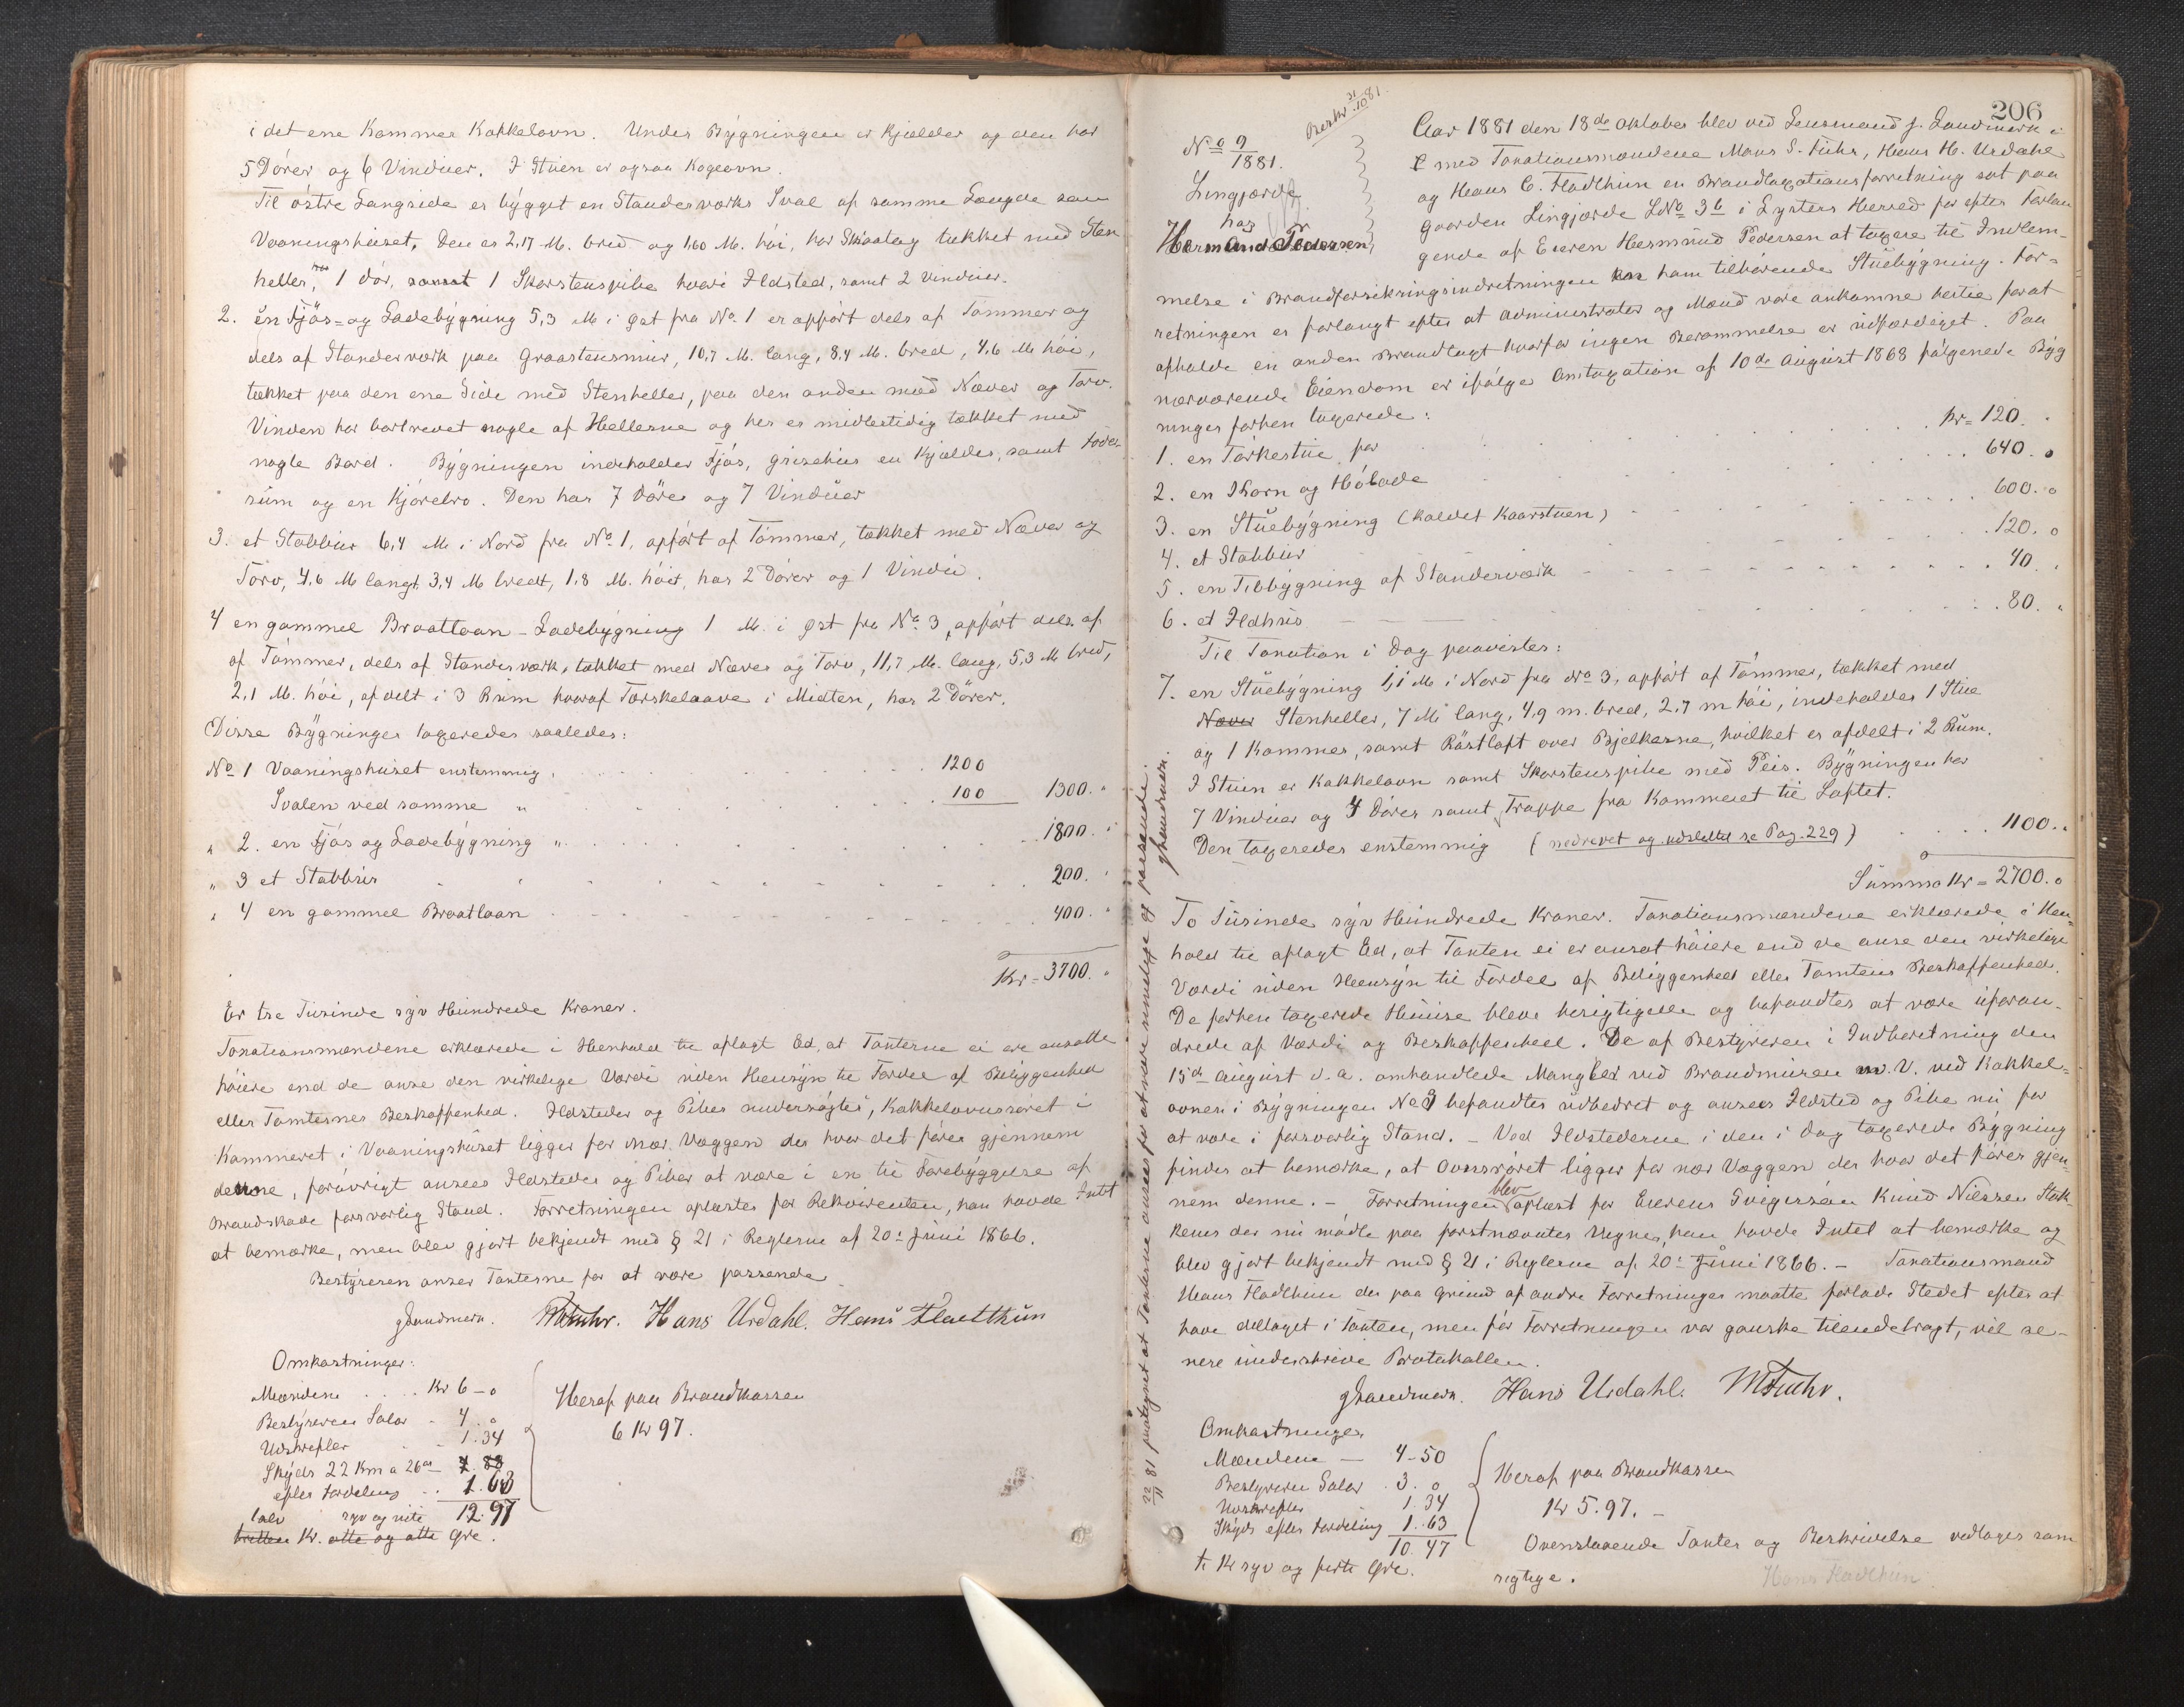 i det ene Kammer Kakkelovn. Under Bygningen er Kjælder og den har
5 Dörer og 6 Vinduer. I Stuen er ogsaa Kogeovn.
Til östre Langside er bygget en Standerværks Sval af samme Længde som
Vaaningshuset. Den er 2,17 M. bred og 1,60 M. höi, har Skraatag tækket med Sten
heller, har 1 Dör, samt 1 Skorstenspibe hvori Ildsted, samt 2 Vinduer.
2. en Fjös- og Ladebygning 5,3 M i Øst fra No. 1 er opfört dels af Tømmer og
dels af Standerværk paa Graastensmur, 10,7 M. lang, 8,4 M. bred, 4,6 M höi,
tækket paa den ene Side med Stenheller, paa den anden med Næver og Torv.
Vinden har bortrevet nogle af Hellerne og her er midlertidig tækket med
nogle Bord. Bygningen indeholder Fjös, Grisehus en Kjælder, samt Foder-
rum og en Kjörebro. Den har 7 Dörer og 7 Vinduer
3. et Stabbur 6,4 M i Nord fra No. 1, opfört af Tömmer, tækket med Næver og
Torv, 4,6 M langt, 3,4 M bredt, 1,8 M. höit, har 2 Dörer og 1 Vindu.
4 en gammel Braatloan-Ladebygning 1 M. i Øst fra No. 3, opfört dels af
af Tömmer, dels af Standerværk, tækket med Næver og Torv, 11,7 M. lang, 5,3 M bred,
2,1 M. höi, afdelt i 3 Rum hvoraf Tærskelaave i Midten, har 2 Dörer.
Disse Bygninger taxeredes saaledes:
No 1 Vaaningshuset enstemmig . . . 1200
Svalen ved samme " . . . 100 1300. "
" 2. en Fjös og Ladebygning " . . . 1800. "
" 3 et Stabbur . . . 200. "
" 4 en gammel Braatloan . . . 400. "
Kr = 3700. "
Er tre Tusinde syv Hundrede Kroner.
Taxationsmændene erklærede i Henhold til aflagt Ed, at Taxterne ei ere ansatte
höiere end de anse den virkelige Værdi uden Hensyn til Fordel af Beliggenhed
eller Tomternes Beskaffenhed. Ildsteder og Piber undersögtes, Kakkelovnsröret i
Kammeret i Vaaningshuset ligger for nær Væggen der hvor det förer gjennem
denne, forövrigt ansees Ildsteder og Piber at være i en til Forebyggelse af
Brandskade forsvarlig Stand. Forretningen oplæstes for Rekvirenten, han havde Intet
at bemærke, men blev gjort bekjendt med § 21 i Reglerne af 20de Juni 1866.
Bestyreren anser Taxterne for at være passende
JLandmark. MSFuhr. Hans Urdahl. Hans Fladthun
Omkostninger:
Mændene . . . . Kr 6 - 0
Bestyreren Salær - 4 . 0
Udskrifter 1.34
Skyds 22 Km a 26 ør 7.88
efter Fordeling . . 1.63
12.97
tolv syv og niti
tretten Kr. otte og otte Øre.
Heraf paa Brandkassen
6 Kr 97.
22/11 81 paategnet at Taxterne ansees for at være rimelige og passende.
JLandmark.
206
Beskr 31/10 81.
No 9/1881.
Lingjærde
has
Hermund Pedersen
Aar 1881 den 18de Oktober blev ved Lensmand J. Landmark i
med Taxationsmændene Mons S. Fuhr, Hans H. Urdahl
og Hans C. Fladthun en Brandtaxationsforretning sat paa
Gaarden Lingjærde LNo 36 i Lysters Herred for efter Forlan
gende af Eieren Hermund Pedersen at taxere til Indlem-
melse i Brandforsikringsindretningen ham tilhørende Stuebygning. For-
retningen er forlangt efter at Administrator og Mænd vare ankomne hertil for at
afholde en anden Brandtaxt hvorfor ingen Berammelse er udfærdiget. Paa
nærværende Eiendom er ifölge Omtaxation af 10de August 1868 fölgende Byg
ninger forhen taxerede:
1. en Törkestue for . . . Kr = 120. "
2. en Korn og Hölade . . . 640. 0
3. en Stuebygning (kaldet Kaarstuen) . . . 600. 0
4. et Stabbur . . . 120. 0
5. en Tilbygning af Standerværk . . . 40. "
6. et Ildhus . . . 80. "
Til Taxation i Dag paavistes:
7. en Stuebygning 1,1 M i Nord fra No 3, opfört af Tömmer, tækket med
Næver Stenheller, 7 M lang, 4,9 m. bred, 2,7 m höi, indeholder 1 Stue
og 1 Kammer, samt Röstloft over Bjelkerne, hvilket er afdelt i 2 Rum.
I Stuen er Kakkelovn samt Skorstenspibe med Peis. Bygningen har
7 Vinduer og 4 Dörer samt Trappe fra Kammeret til Loftet.
Den taxeredes enstemmig (nedrevet og udslettet se Pag. 229) . . . 1100. "
Summa Kr = 2700. 0
To Tusinde syv Hundrede Kroner. Taxationsmændene erklærede i Hen-
hold til aflagt Ed, at Taxten ei er ansat höiere end de anse den virkelige
Værdi uden Hensyn til Fordel af Beliggenhed eller Tomtens Beskaffenhed.
De forhen taxerede Huse bleve besigtigede og befandtes at være uforan-
drede af Værdi og Beskaffenhed. De af Bestyreren i Indberetning den
15de August d. a. omhandlede Mangler ved Brandmuren m. V. ved Kakkel-
ovnen i Bygningen No 3 befandtes udbedret og ansees Ildsted og Pibe nu for
at være i forsvarlig Stand. - Ved Ildstederne i den i Dag taxerede Bygning
findes at bemærke, at Ovnsröret ligger for nær Væggen der hvor det förer gjen-
nem denne. - Forretningen blev oplæst for Eierens Svigersön Knud Nilssen Stok-
kens der nu mödte paa förstnævntes Vegne, han havde Intet at bemærke og
blev gjort bekjendt med § 21 i Reglerne af 20de Juni 1866. - Taxationsmand
Hans Fladthun der paa Grund af andre Forretninger maatte forlade Stedet efter at
have deltaget i Taxten, men för Forretningen var ganske tilendebragt, vil se-
nere underskrive Protokollen.
JLandmark. Hans Urdahl. MSFuhr.
Omkostninger
Mændene - 4-50
Bestyreren Salær . 3. 0
Udskrifter 1.34
Skyds efter Fordeling 1.63
10.47
ti Kr syv og førti Øre.
Heraf paa Brandkassen
Kr 5.97. -
Ovenstaaende Taxter og Beskrivelse vedtages som
rigtige. Hans Fladthun